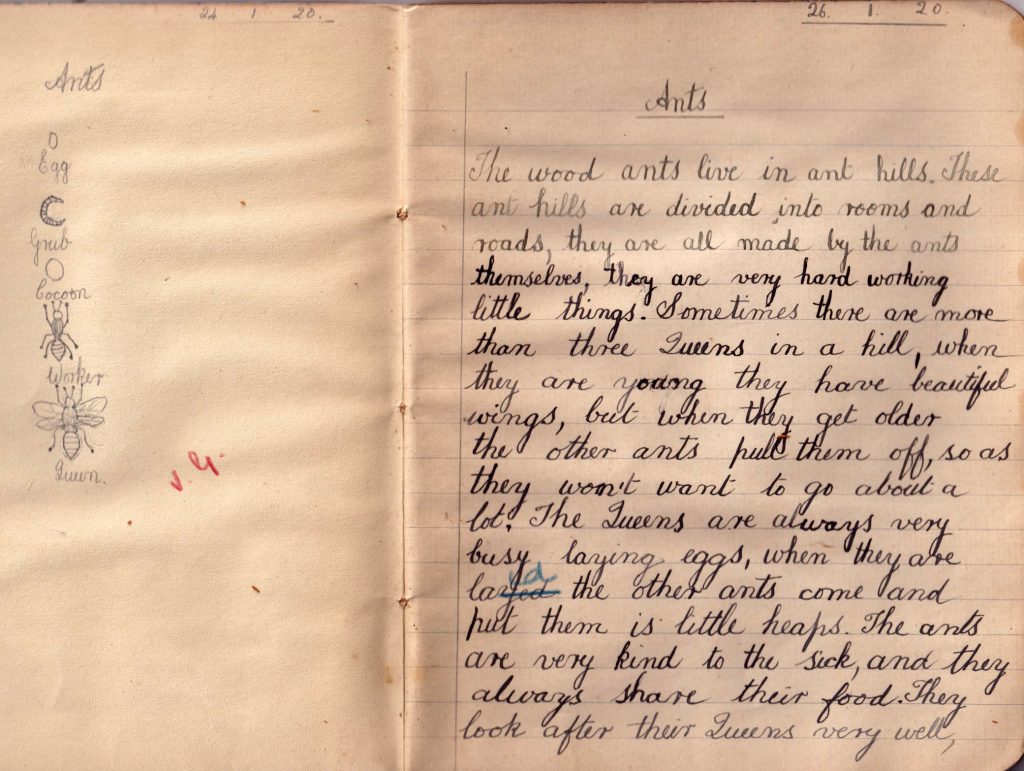 24 1 20.
Ants
Egg
Grub
Cocoon
Worker
Queen.
v. g.
26. 1. 20.
Ants
The wood ants live in ant hills. These
ant hills are divided into rooms and
roads, they are all made by the ants
themselves, they are very hard working
little things. Sometimes there are more
than three Queens in a hill, when
they are young they have beautiful
wings, but when they get older
the other ants pull them off, so as
they won't want to go about a
lot. The Queens are always very
busy laying eggs, when they are
layed id the other ants come and
put them is little heaps. The ants
are very kind to the sick, and they
always share their food. They
look after their Queens very well,